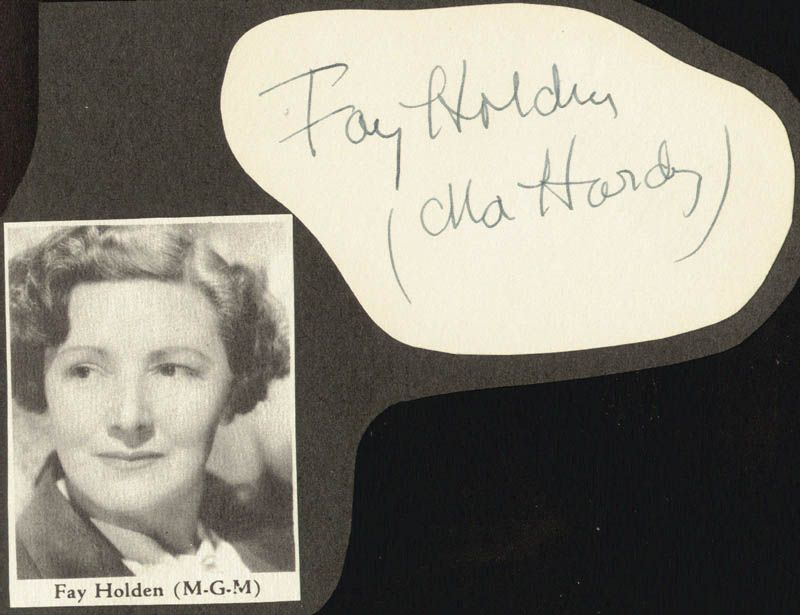 Fay Holden
(Ma Hardy)
Fay Holden (M-G-M)